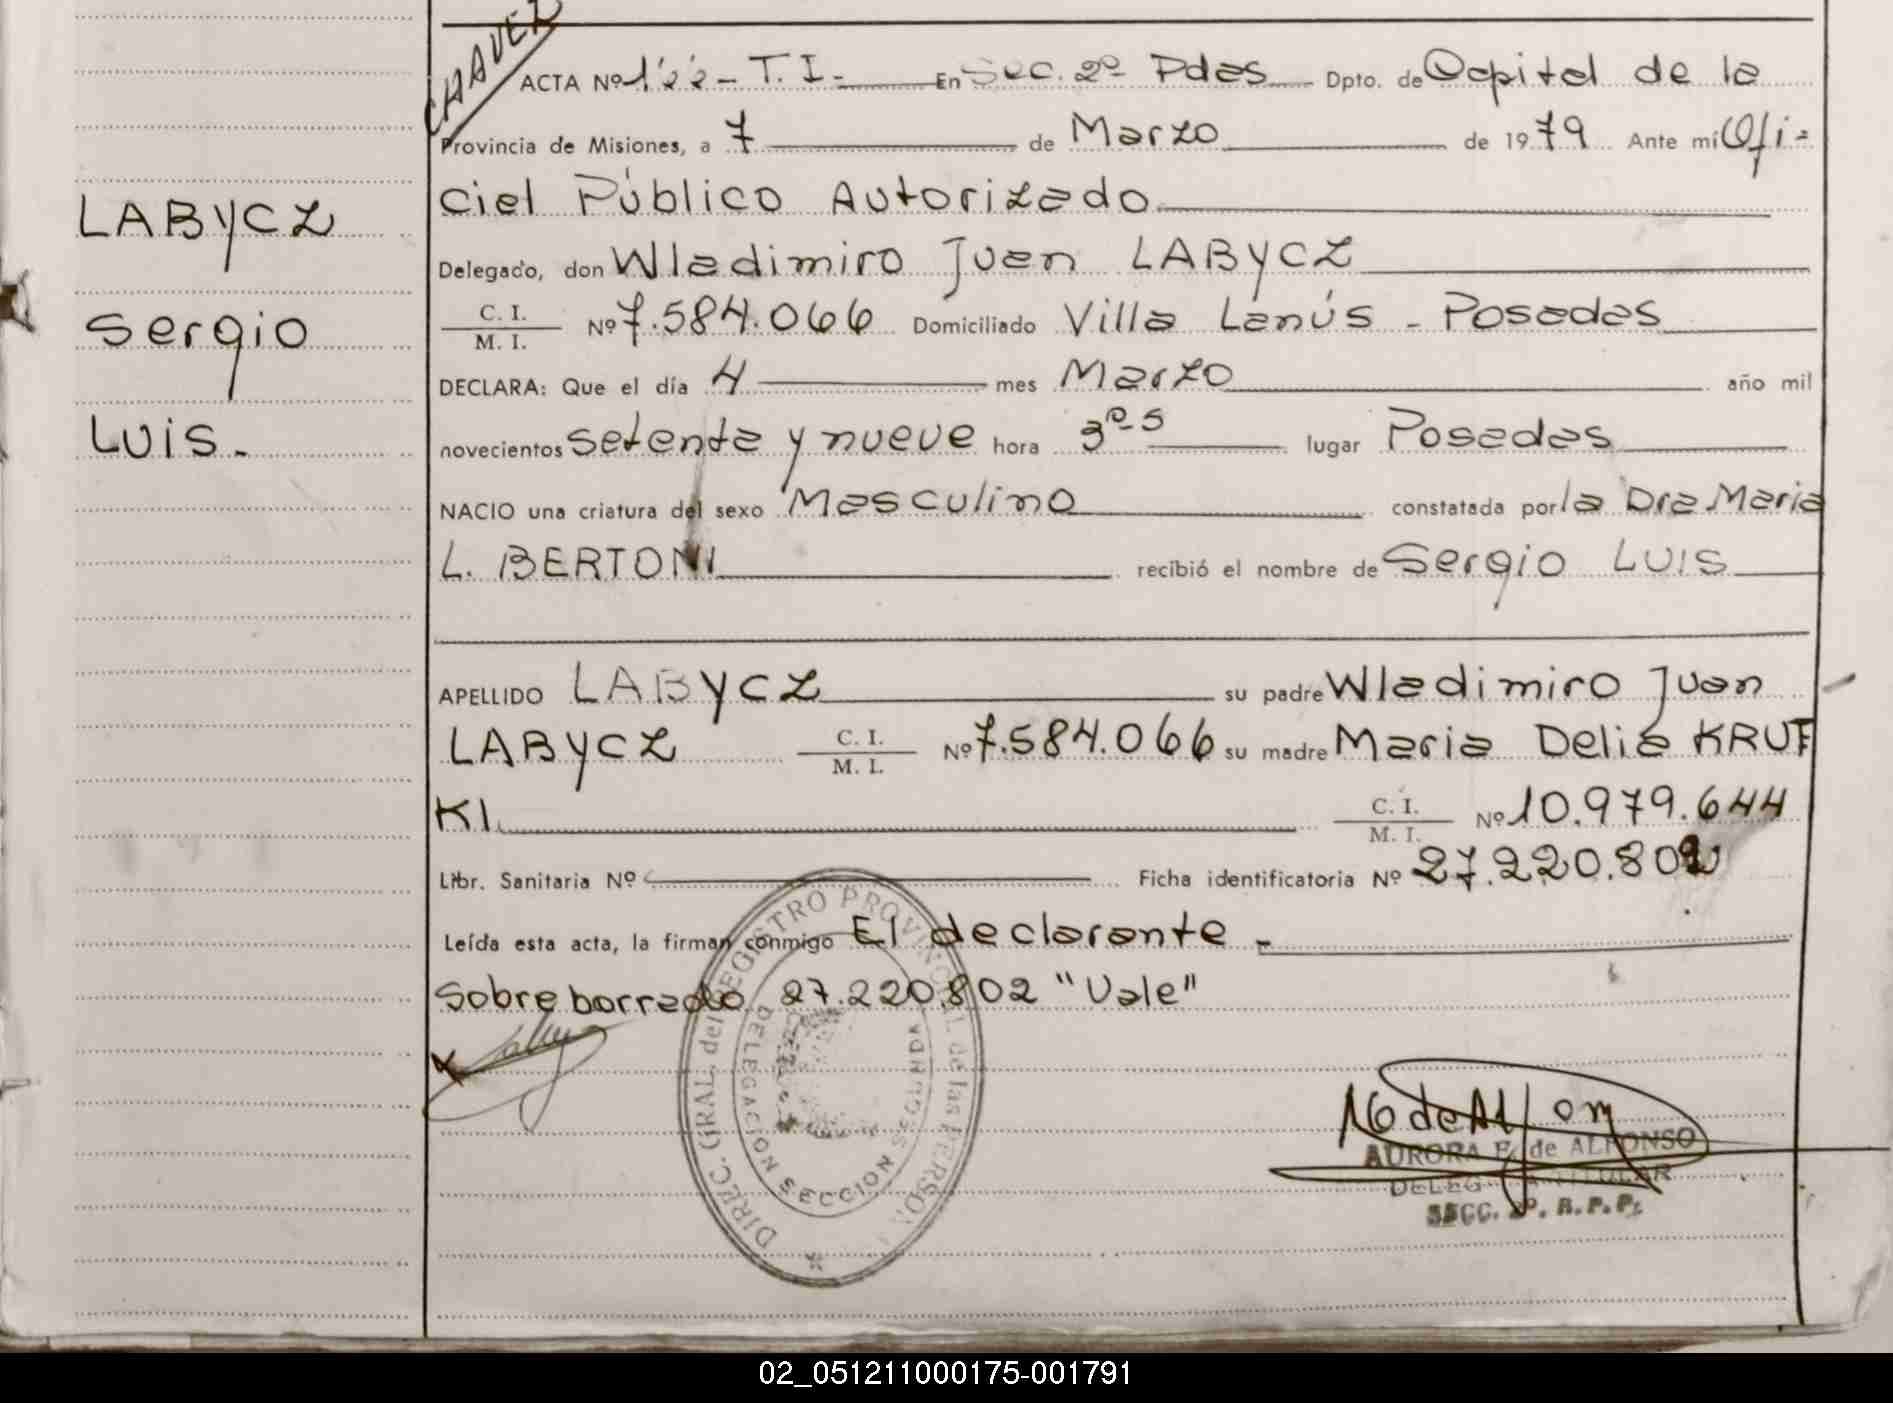 CHAVEZ
ACTA Nº 122 - T.I. - En Sec. 2º Pdas Dpto. de Capital de la
Provincia de Misiones, a 7 de Marzo de 1979 Ante mí Ofi-
cial Público Autorizado
Delegado, don Wladimiro Juan LABYCZ
C. I.
M. I. Nº 7.584.066 Domiciliado Villa Lanús - Posadas
DECLARA: Que el día 4 mes Marzo año mil
novecientos setenta y nueve hora 3ºs lugar Posadas
NACIO una criatura del sexo Masculino constatada por la Dra Maria
L. BERTONI recibió el nombre de Sergio LUIS
APELLIDO LABYCZ su padre Wladimiro Juan
LABYCZ C. I.
M. I. Nº 7.584.066 su madre Maria Delia KRUT
KI C. I.
M. I. Nº 10.979.644
Libr. Sanitaria Nº Ficha identificatoria Nº 27.220.802
Leída esta acta, la firman conmigo El declarante -
Sobre borrado 27.220.802 "Vale"
LABYCZ
Sergio
LUIS.
DIREC. GRAL. del REGISTRO PROVINCIAL de las PERSONAS
DELEGACION SECCION SEGUNDA
AURORA F. de ALFONSO
DELEGADA TITULAR
SECC. 2º. R.P.P.
02_051211000175-001791